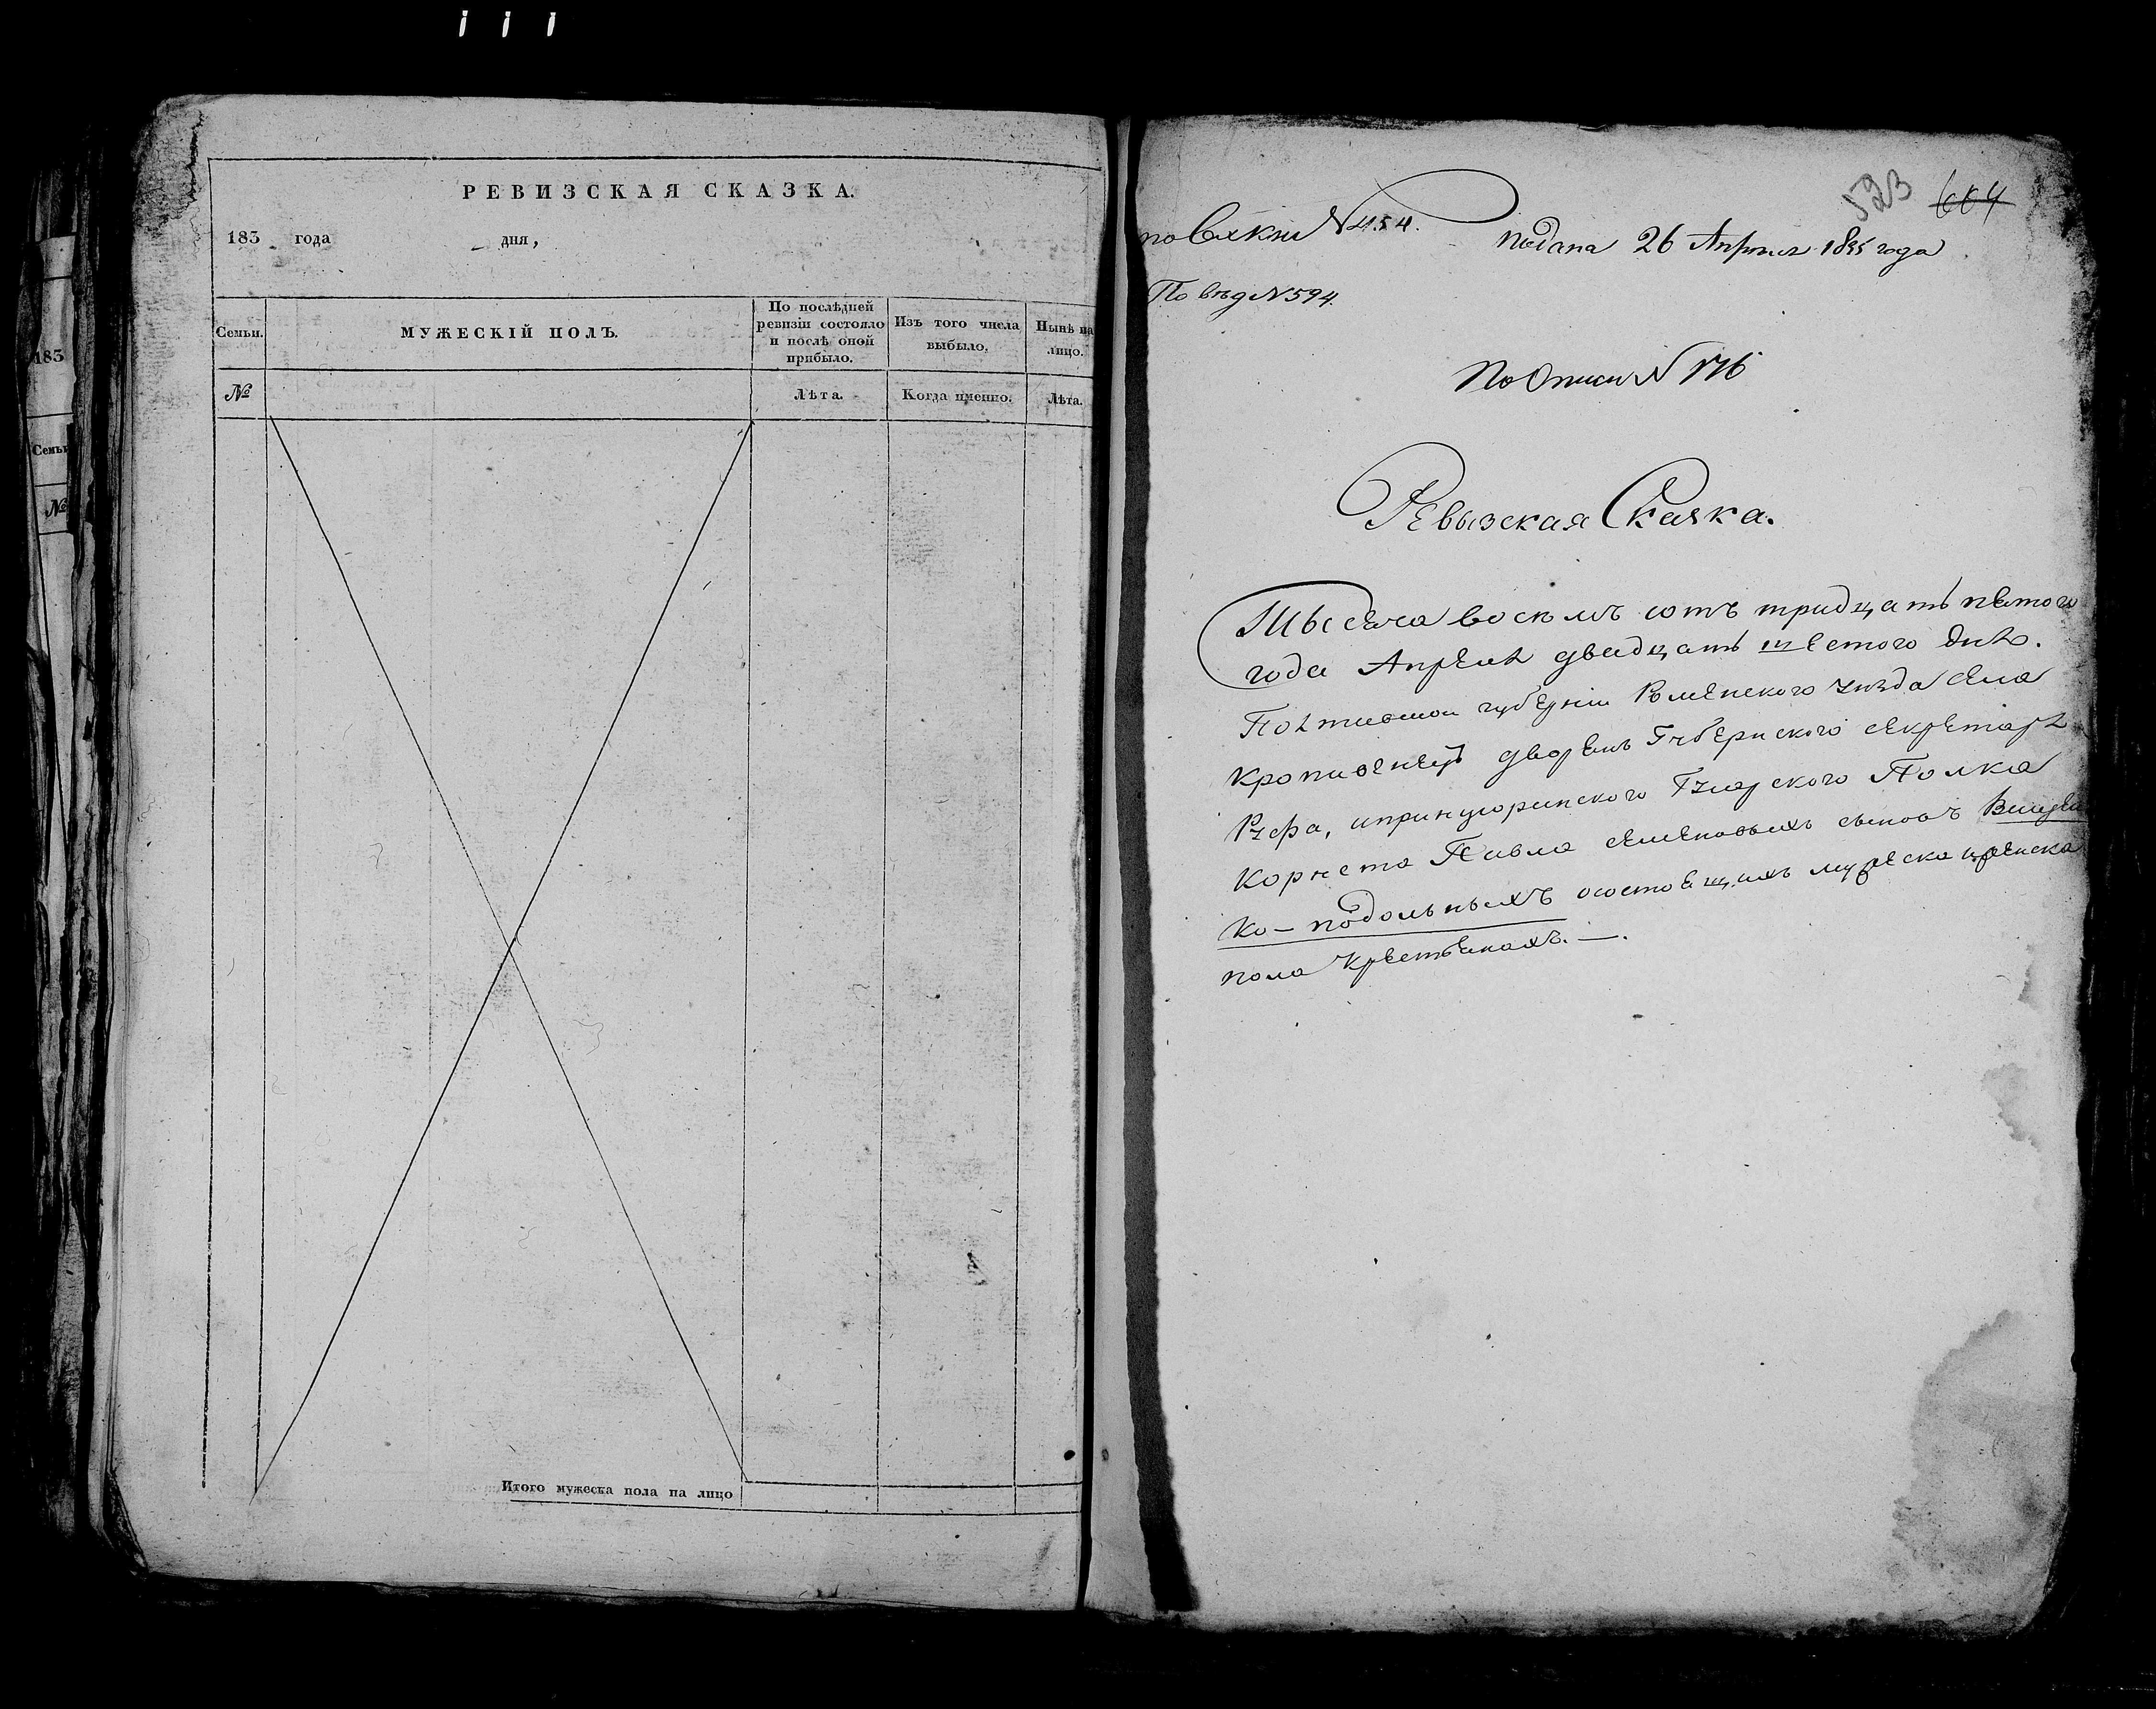 РЕВИЗСКАЯ СКАЗКА.
183 года дня,
Семьи. МУЖЕСКІЙ ПОЛЪ. По послѣдней ревизіи состояло и послѣ оной прибыло. Изъ того числа выбыло. Нынѣ на лицо.
№ Лѣта. Когда именно. Лѣта.
Итого мужеска пола на лицо
183
Семьи
№
523 604
№ 454. подана 26 Апреля 1835 года
По вѣд № 594.
По Описи № 176
Ревызская Скаска.
Тысеча восемъ сотъ тридцать пѣтого
года Апреля двадцать шестого дня.
Полтавской губернiи Роменского уѣзда села
дворянъ Губернского секретаря
Гусарского Полка
Корнета Павла семеновыхъ сыновъ
ко-подольныхъ осостоящихъ мужеска
пола крестьянахъ.—.